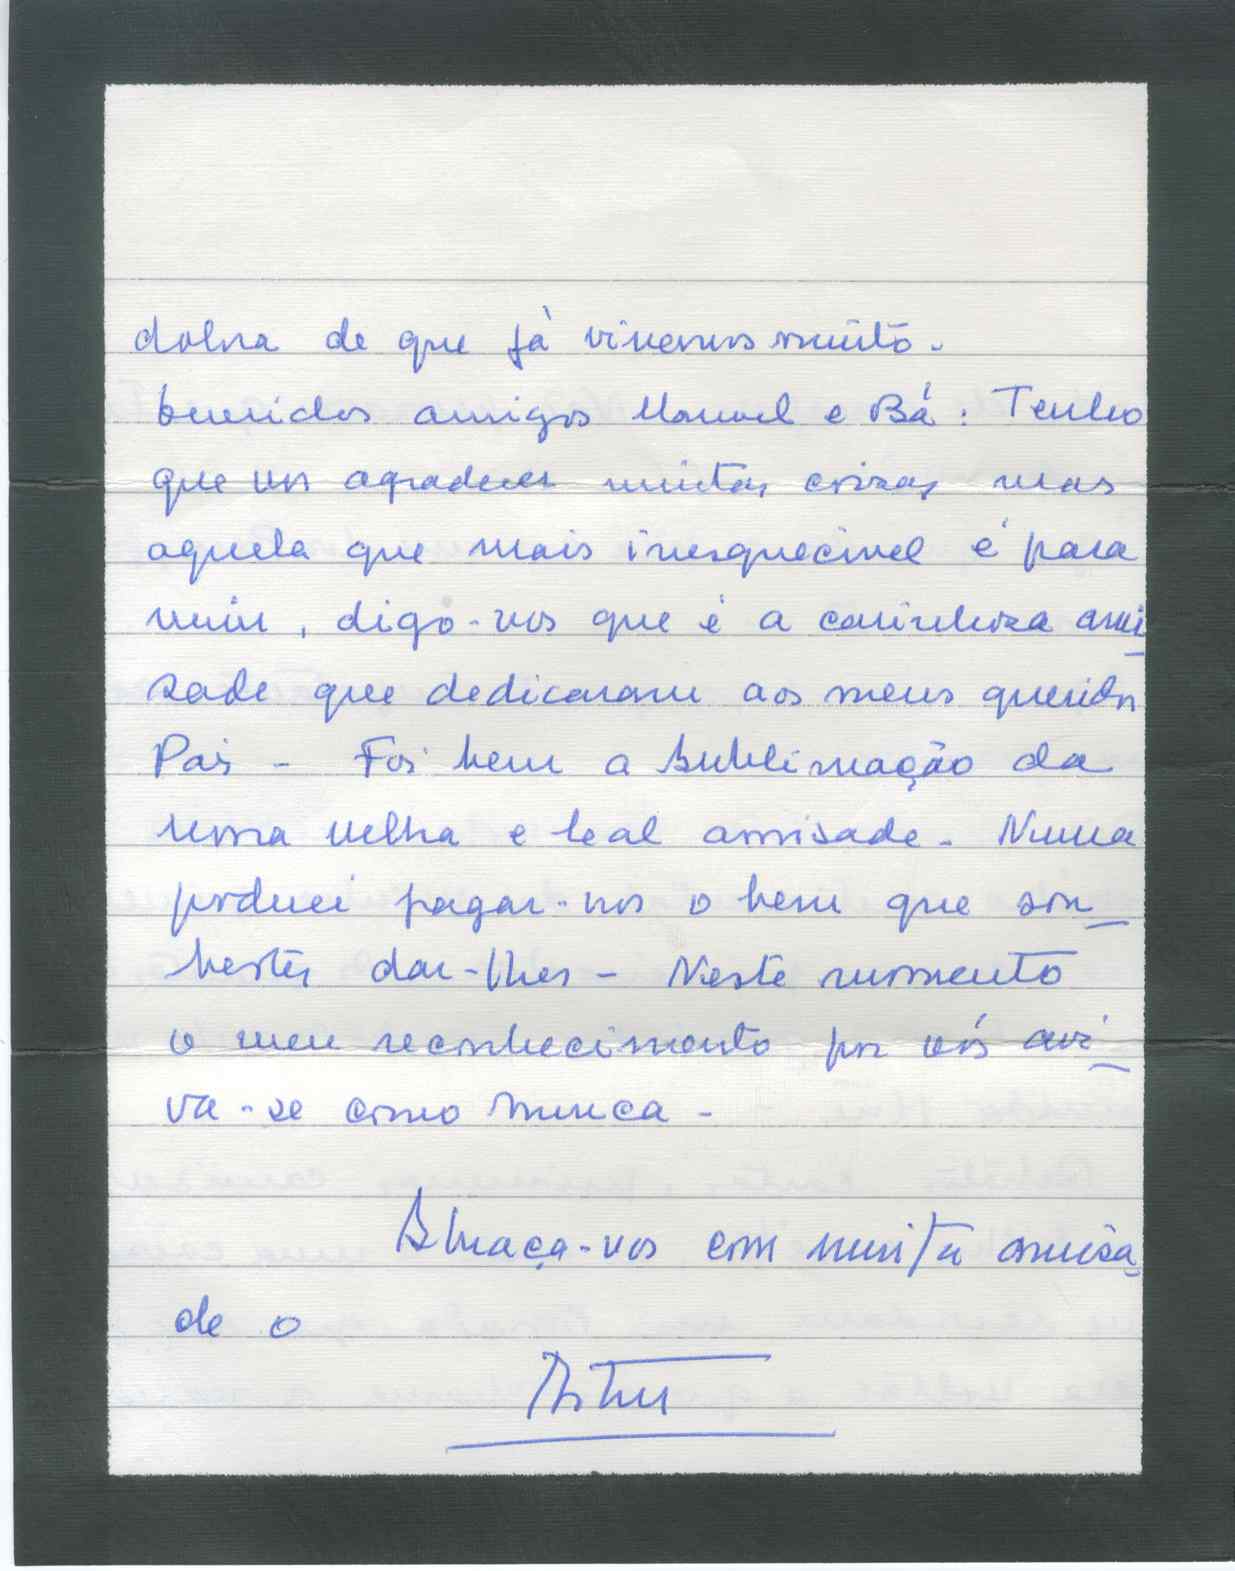 dolna de que já vivemos muito.
Queridos amigos Manuel e Bá: Tenho
que vos agradecer muitas coisas mas
aquela que mais inesquecivel é para
mim, digo-vos que é a carinhosa ami
zade que dedicaram aos meus queridos
Pais - Foi bem a sublimação da
nossa velha e leal amisade. Nunca
poderei pagar-vos o bem que sou_
bestes dar-lhes - Neste momento
o meu reconhecimento por vós avi_
va-se como nunca -
Abraça-vos com muita amisa_
de o
Artur